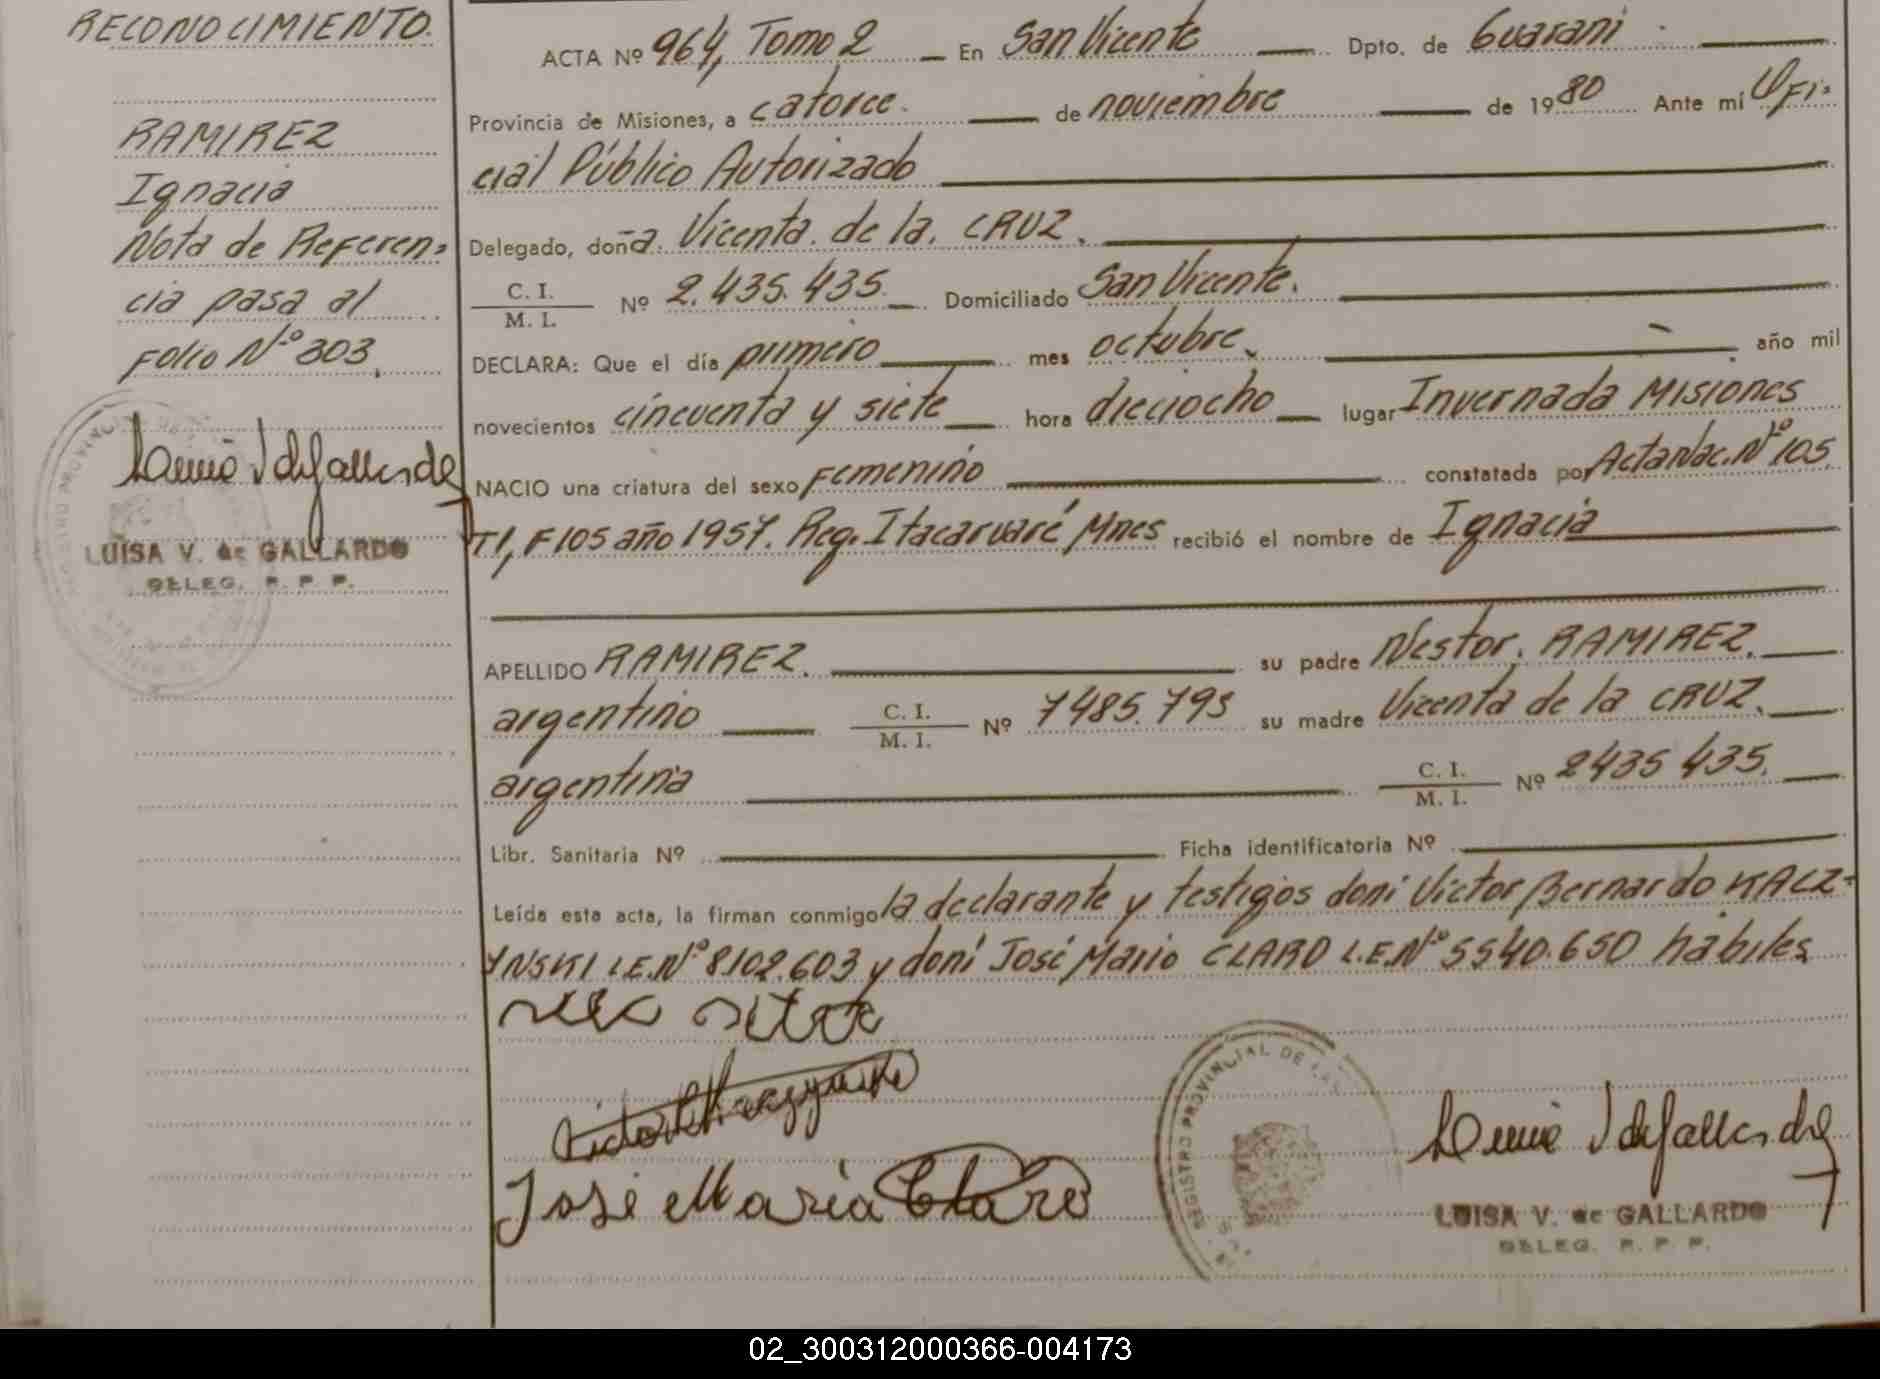 RECONOCIMIENTO.
RAMIREZ
Ignacia
Nota de Referen=
cia pasa al
Folio Nº 303.
LUISA V. de GALLARDO
DELEG. R. P. P.
ACTA Nº 964, Tomo 2 En San Vicente Dpto. de Guarani
Provincia de Misiones, a catorce. de noviembre de 1980 Ante mí Ofi=
cial Público Autorizado
Delegado, doña. Vicenta. de la. CRUZ.
C. I.
M. I. Nº 2.435.435 Domiciliado San Vicente.
DECLARA: Que el día primero mes octubre. año mil
novecientos cincuenta y siete hora dieciocho lugar Invernada Misiones
NACIO una criatura del sexo Femenino constatada por Acta Nac. Nº 105
T1, F105 año 1957. Reg. Itacaruaré Mnes recibió el nombre de Ignacia
APELLIDO RAMIREZ. su padre Nestor. RAMIREZ.
argentino C. I.
M. I. Nº 7485.793 su madre Vicenta de la CRUZ.
argentina C. I.
M. I. Nº 2435 435.
Libr. Sanitaria Nº Ficha identificatoria Nº
Leída esta acta, la firman conmigo la declarante y testigos doni Victor Bernardo KACZ=
YNSKI L.E.Nº 8102.603 y doni José Mario CLARO L.E.Nº 5540.650 hábiles
José Maria Claro
REGISTRO PROVINCIAL DE LAS
LUISA V. de GALLARDO
DELEG. R. P. P.
02_300312000366-004173